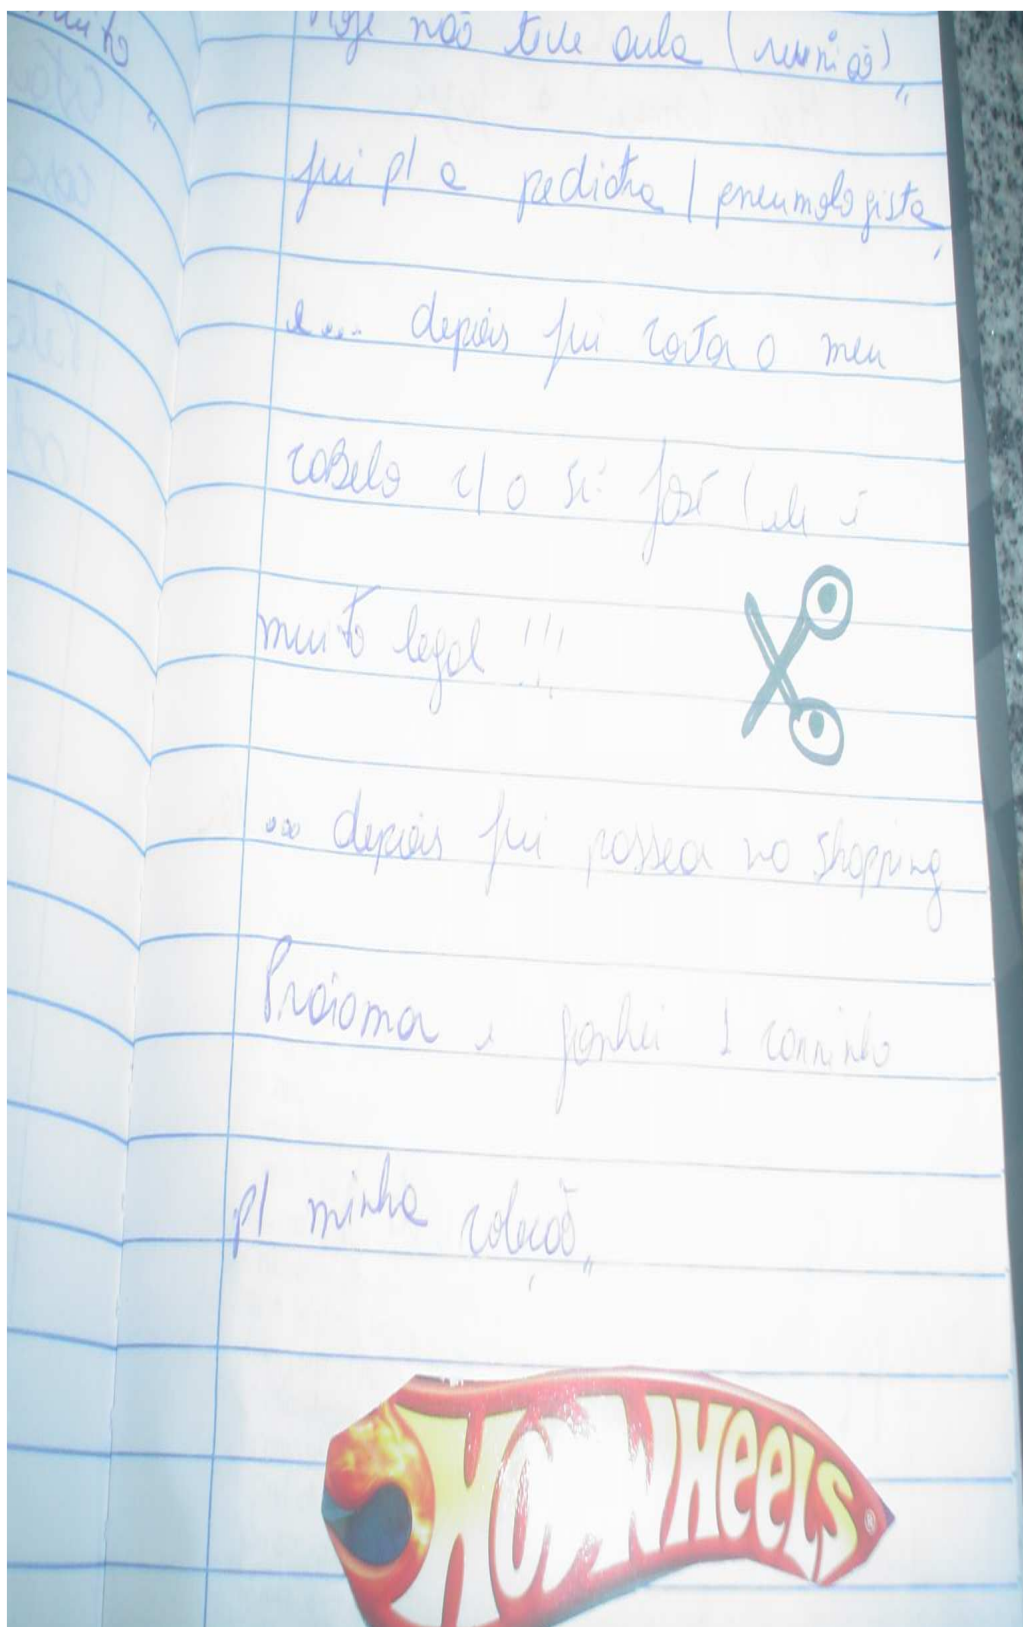 muito
Hoje não tive aula (reunião),,
fui p/ a pediatra / pneumologista,
e... depois fui corta o meu
cabelo c/ o Sr. José (ele é
muito legal!!!
... depois fui passear no Shopping
Praiamar e ganhei 1 carrinho
p/ minha coleção,,
HOT WHEELS ®